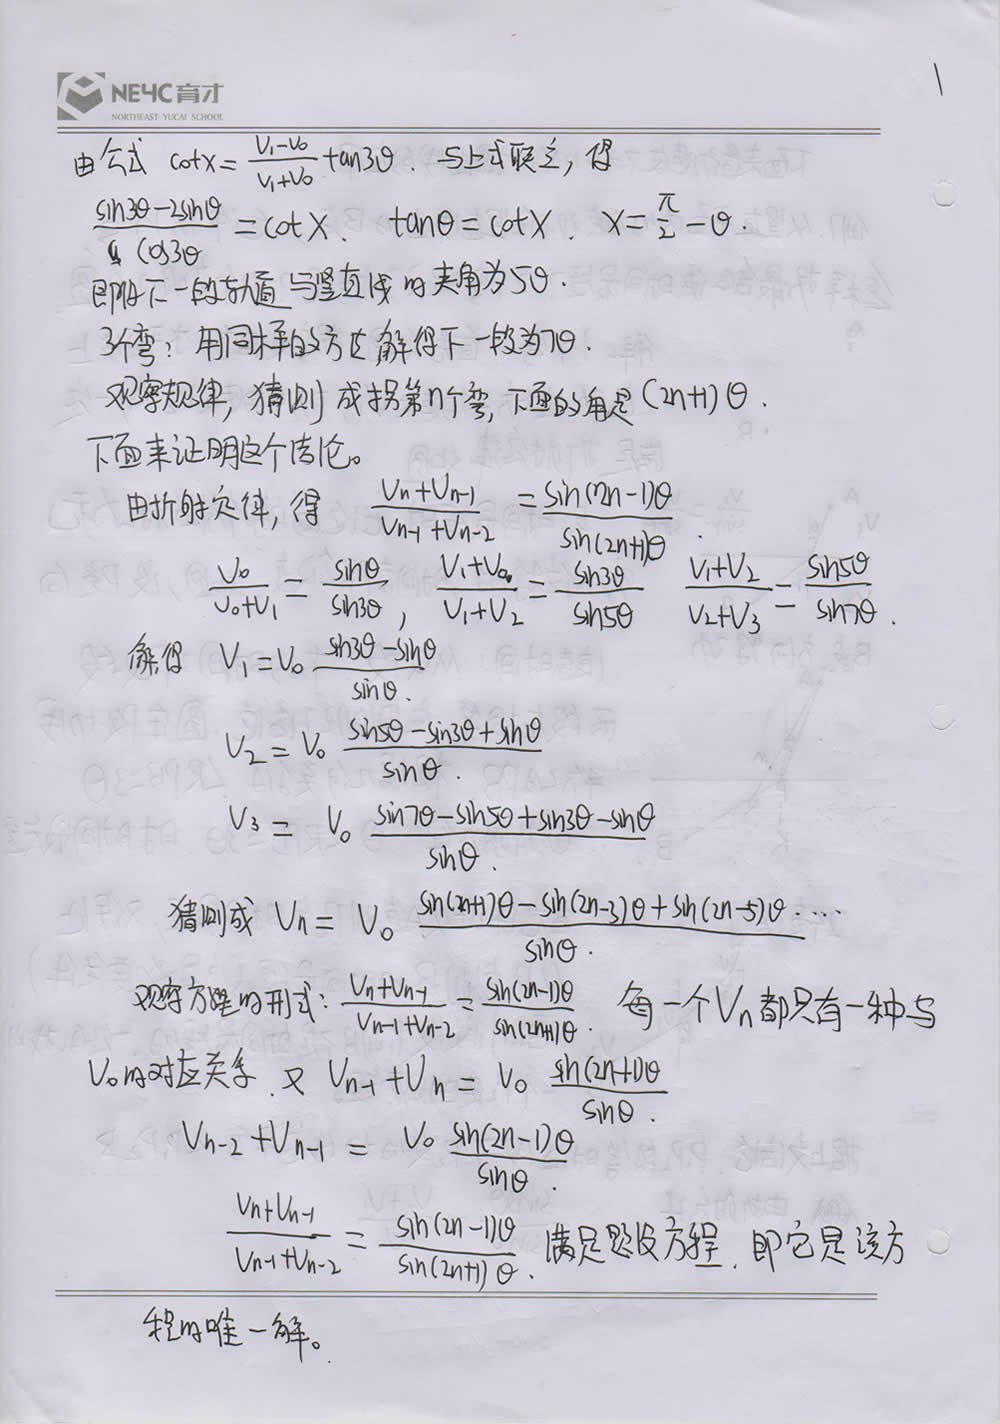 1
NEYC育才
NORTHEAST YUCAI SCHOOL
由公式 cotx = (V₁-V₀)/(V₁+V₀) tan3θ. 与上式联立, 得
(sin3θ-2sinθ)/cos3θ = cotX. tanθ = cotX. x = π/2 - θ.
即下一段轨道与竖直线的夹角为5θ.
3个弯: 用同样的方法解得下一段为7θ.
观察规律, 猜测成拐第n个弯, 下面的角是(2n+1)θ.
下面来证明这个结论。
由折射定律, 得 (Vn+Vn-1)/(Vn-1+Vn-2) = sin(2n-1)θ/sin(2n+1)θ.
V₀/(V₀+V₁) = sinθ/sin3θ, (V₁+V₀)/(V₁+V₂) = sin3θ/sin5θ (V₁+V₂)/(V₂+V₃) = sin5θ/sin7θ.
解得 V₁ = V₀ (sin3θ-sinθ)/sinθ.
V₂ = V₀ (sin5θ-sin3θ+sinθ)/sinθ.
V₃ = V₀ (sin7θ-sin5θ+sin3θ-sinθ)/sinθ.
猜测成 Vn = V₀ (sin(2n+1)θ-sin(2n-3)θ+sin(2n-5)θ·····)/sinθ.
观察方程的形式: (Vn+Vn-1)/(Vn-1+Vn-2) = sin(2n-1)θ/sin(2n+1)θ. 每一个Vn都只有一种与
V₀的对应关系. 又 Vn-1+Vn = V₀ sin(2n+1)θ/sinθ.
Vn-2+Vn-1 = V₀ sin(2n-1)θ/sinθ.
(Vn+Vn-1)/(Vn-1+Vn-2) = sin(2n-1)θ/sin(2n+1)θ. 满足题设方程, 即它是该方
程的唯一解。